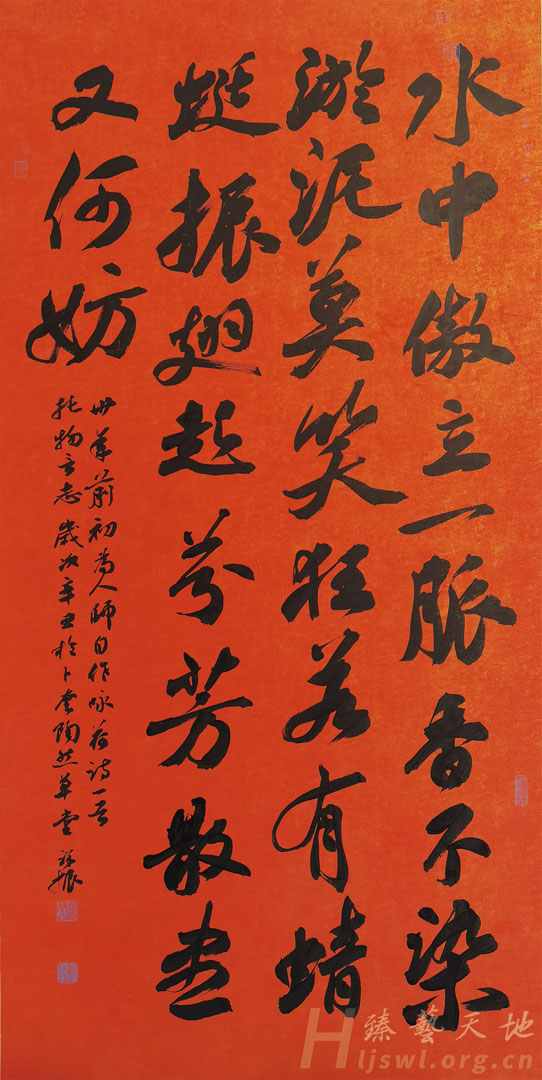 水中傲立一脈香不染
淤泥莫笑狂若有蜻
蜓振翅起芬芳散盡
又何妨
卅年前初為人師自作咏荷詩一首
托物言志歲次辛丑於卜奎陶然草堂
臻藝天地
Hljswl.org.cn